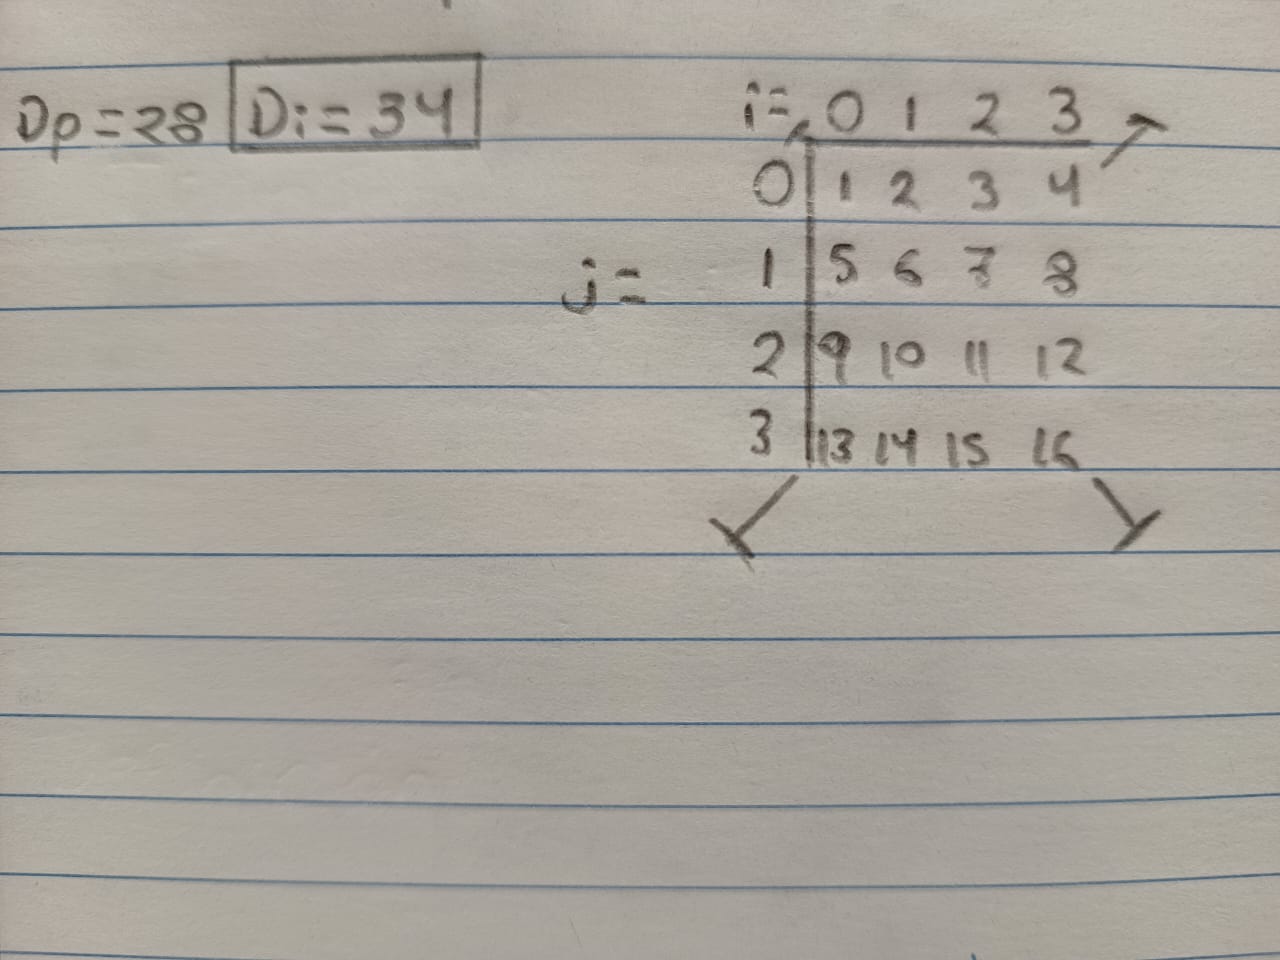 Dp = 28 Di = 34
i= 0 1 2 3
0 1 2 3 4
j= 1 5 6 7 8
2 9 10 11 12
3 13 14 15 16